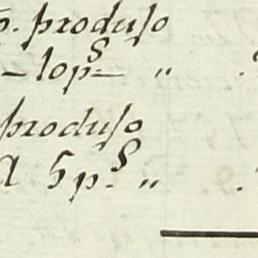 p. produso
- 10 p.s - „
produso
A 5 p.s „